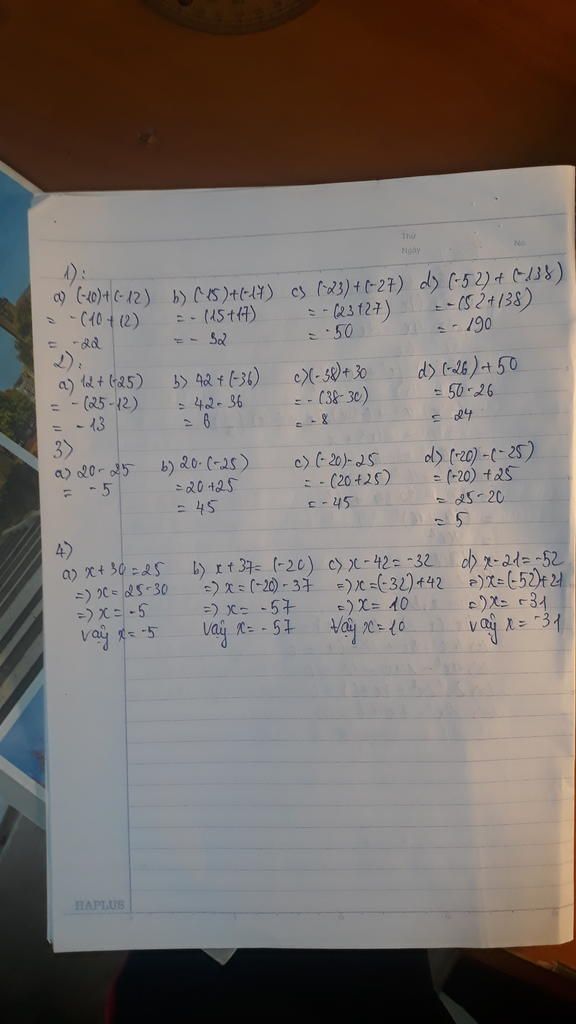 Thứ
Ngày
No.
1):
a) (-10)+(-12) b) (-15)+(-17) c) (-23)+(-27) d) (-52)+(-138)
= -(10+12) = -(15+17) = -(23+27) = -(52+138)
= -22 = - 32 = -50 = - 190
2):
a) 12+(-25) b) 42+(-36) c) (-38)+30 d) (-26)+50
= -(25-12) = 42-36 = -(38-30) = 50-26
= -13 = 6 = -8 = 24
3)
a) 20-25 b) 20-(-25) c) (-20)-25 d) (-20)-(-25)
= -5 = 20+25 = -(20+25) = (-20)+25
= 45 = -45 = 25-20
= 5
4)
a) x+30=25 b) x+37=(-20) c) x-42=-32 d) x-21=-52
=) x=25-30 =) x=(-20)-37 =) x=(-32)+42 =) x=(-52)+21
=) x=-5 =) x= -57 =) x= 10 =) x= -31
Vậy x=-5 Vậy x=-57 Vậy x=10 Vậy x=-31
HAPLUS